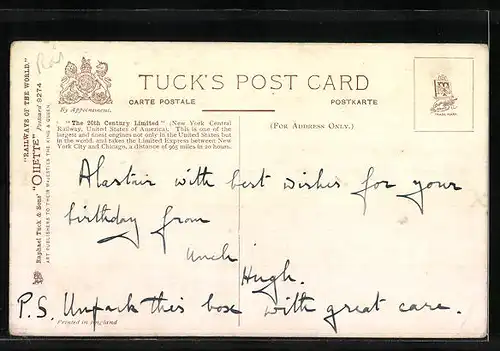 TUCK'S POST CARD
CARTE POSTALE
POSTKARTE
By Appointment.
TRADE MARK
"The 20th Century Limited" (New York Central
Railway, United States of America). This is one of the
largest and finest engines not only in the United States but
in the world, and takes the Limited Express between New
York City and Chicago, a distance of 965 miles in 20 hours.
(FOR ADDRESS ONLY.)
"RAILWAYS OF THE WORLD."
Raphael Tuck & Sons' "OILETTE" Postcard 9274
ART PUBLISHERS TO THEIR MAJESTIES THE KING & QUEEN.
Alastair with best wishes for your
birthday from
Uncle
Hugh.
P.S. Unpack this box with great care.
Printed in England